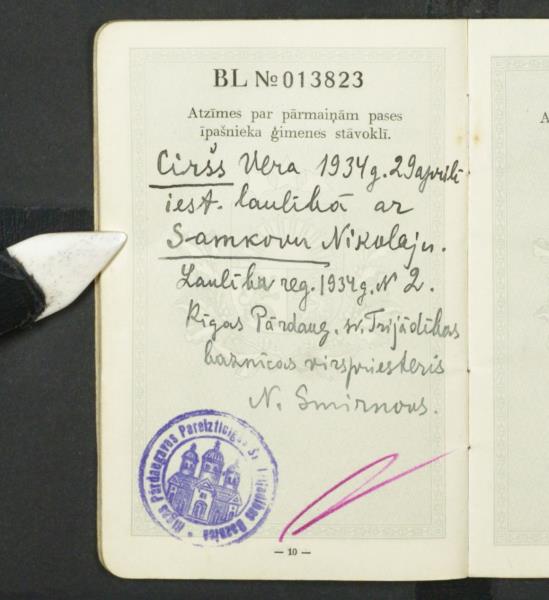 BL № 013823
Atzīmes par pārmaiņām pases
īpašnieka ģimenes stāvoklī.
Ciršs Vera 1934 g. 29 aprilī
iest. laulībā ar
Samkovu Nikolaju.
Laulību reg. 1934 g. N 2.
Rīgas Pārdaug. sv. Trijādības
baznīcas virspriesteris
N. Smirnovs.
Rīgas Pārdaugavas Pareizticīgo Sv. Trijādības Baznīca
— 10 —
A